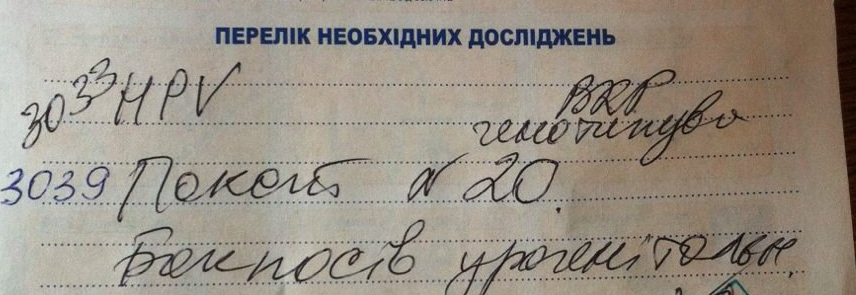 ПЕРЕЛІК НЕОБХІДНИХ ДОСЛІДЖЕНЬ
3033 HPV ВКР
генотипува
3039 Пакет N 20.
Бакпосів урогенітальн.